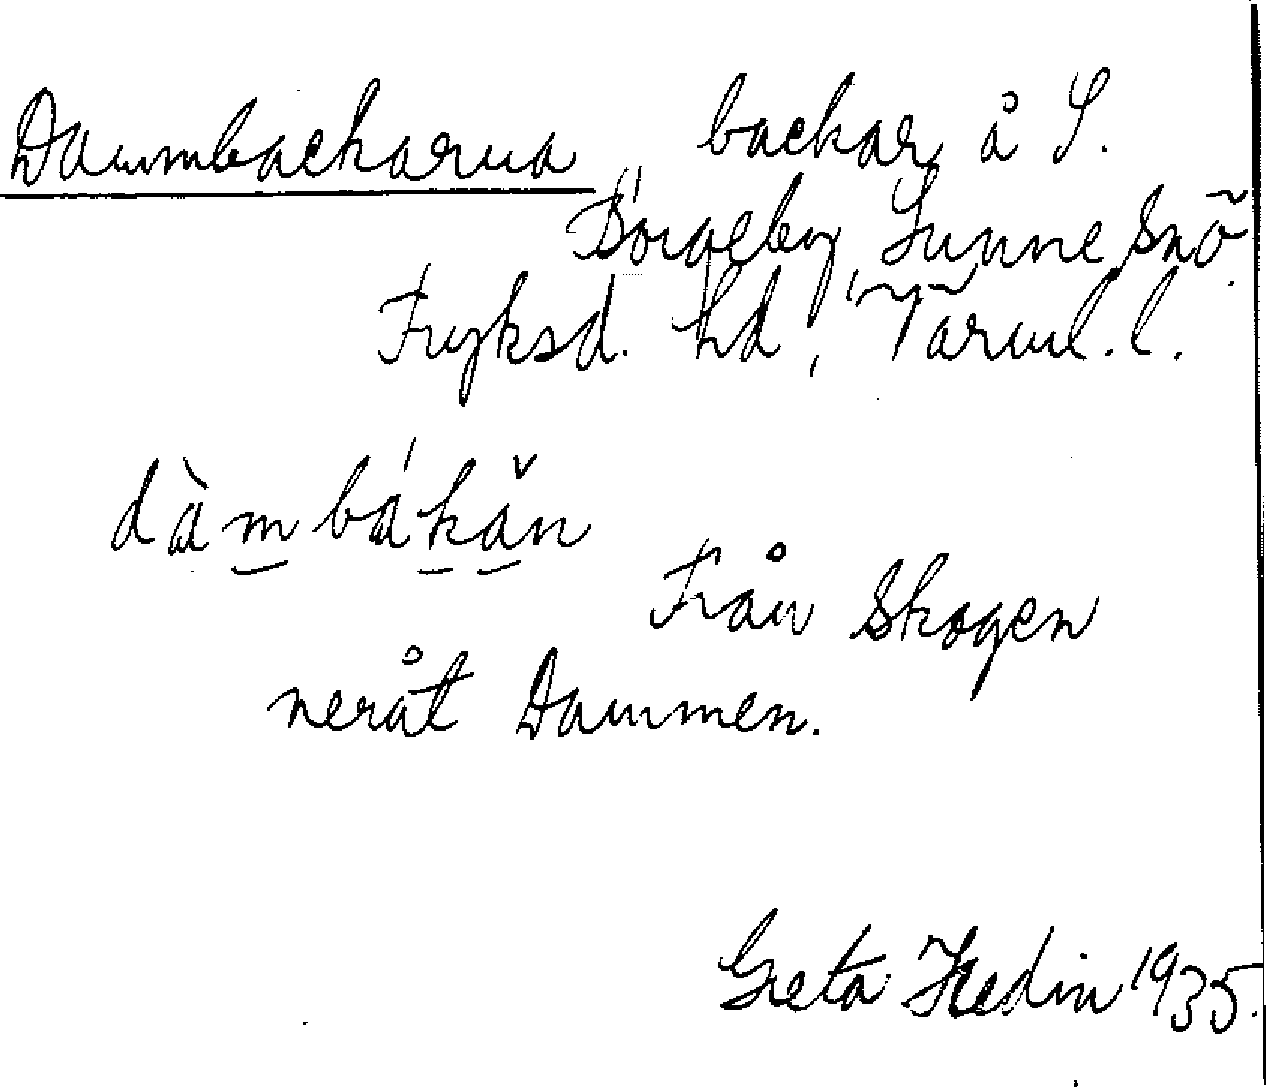 Dammbackarna backar å S.
Börgeby, Sunne snö.
Fryksd. hd, Värml. l.
dàm bákǎn
Från skogen
neråt Dammen.
Greta Hedin 1935.